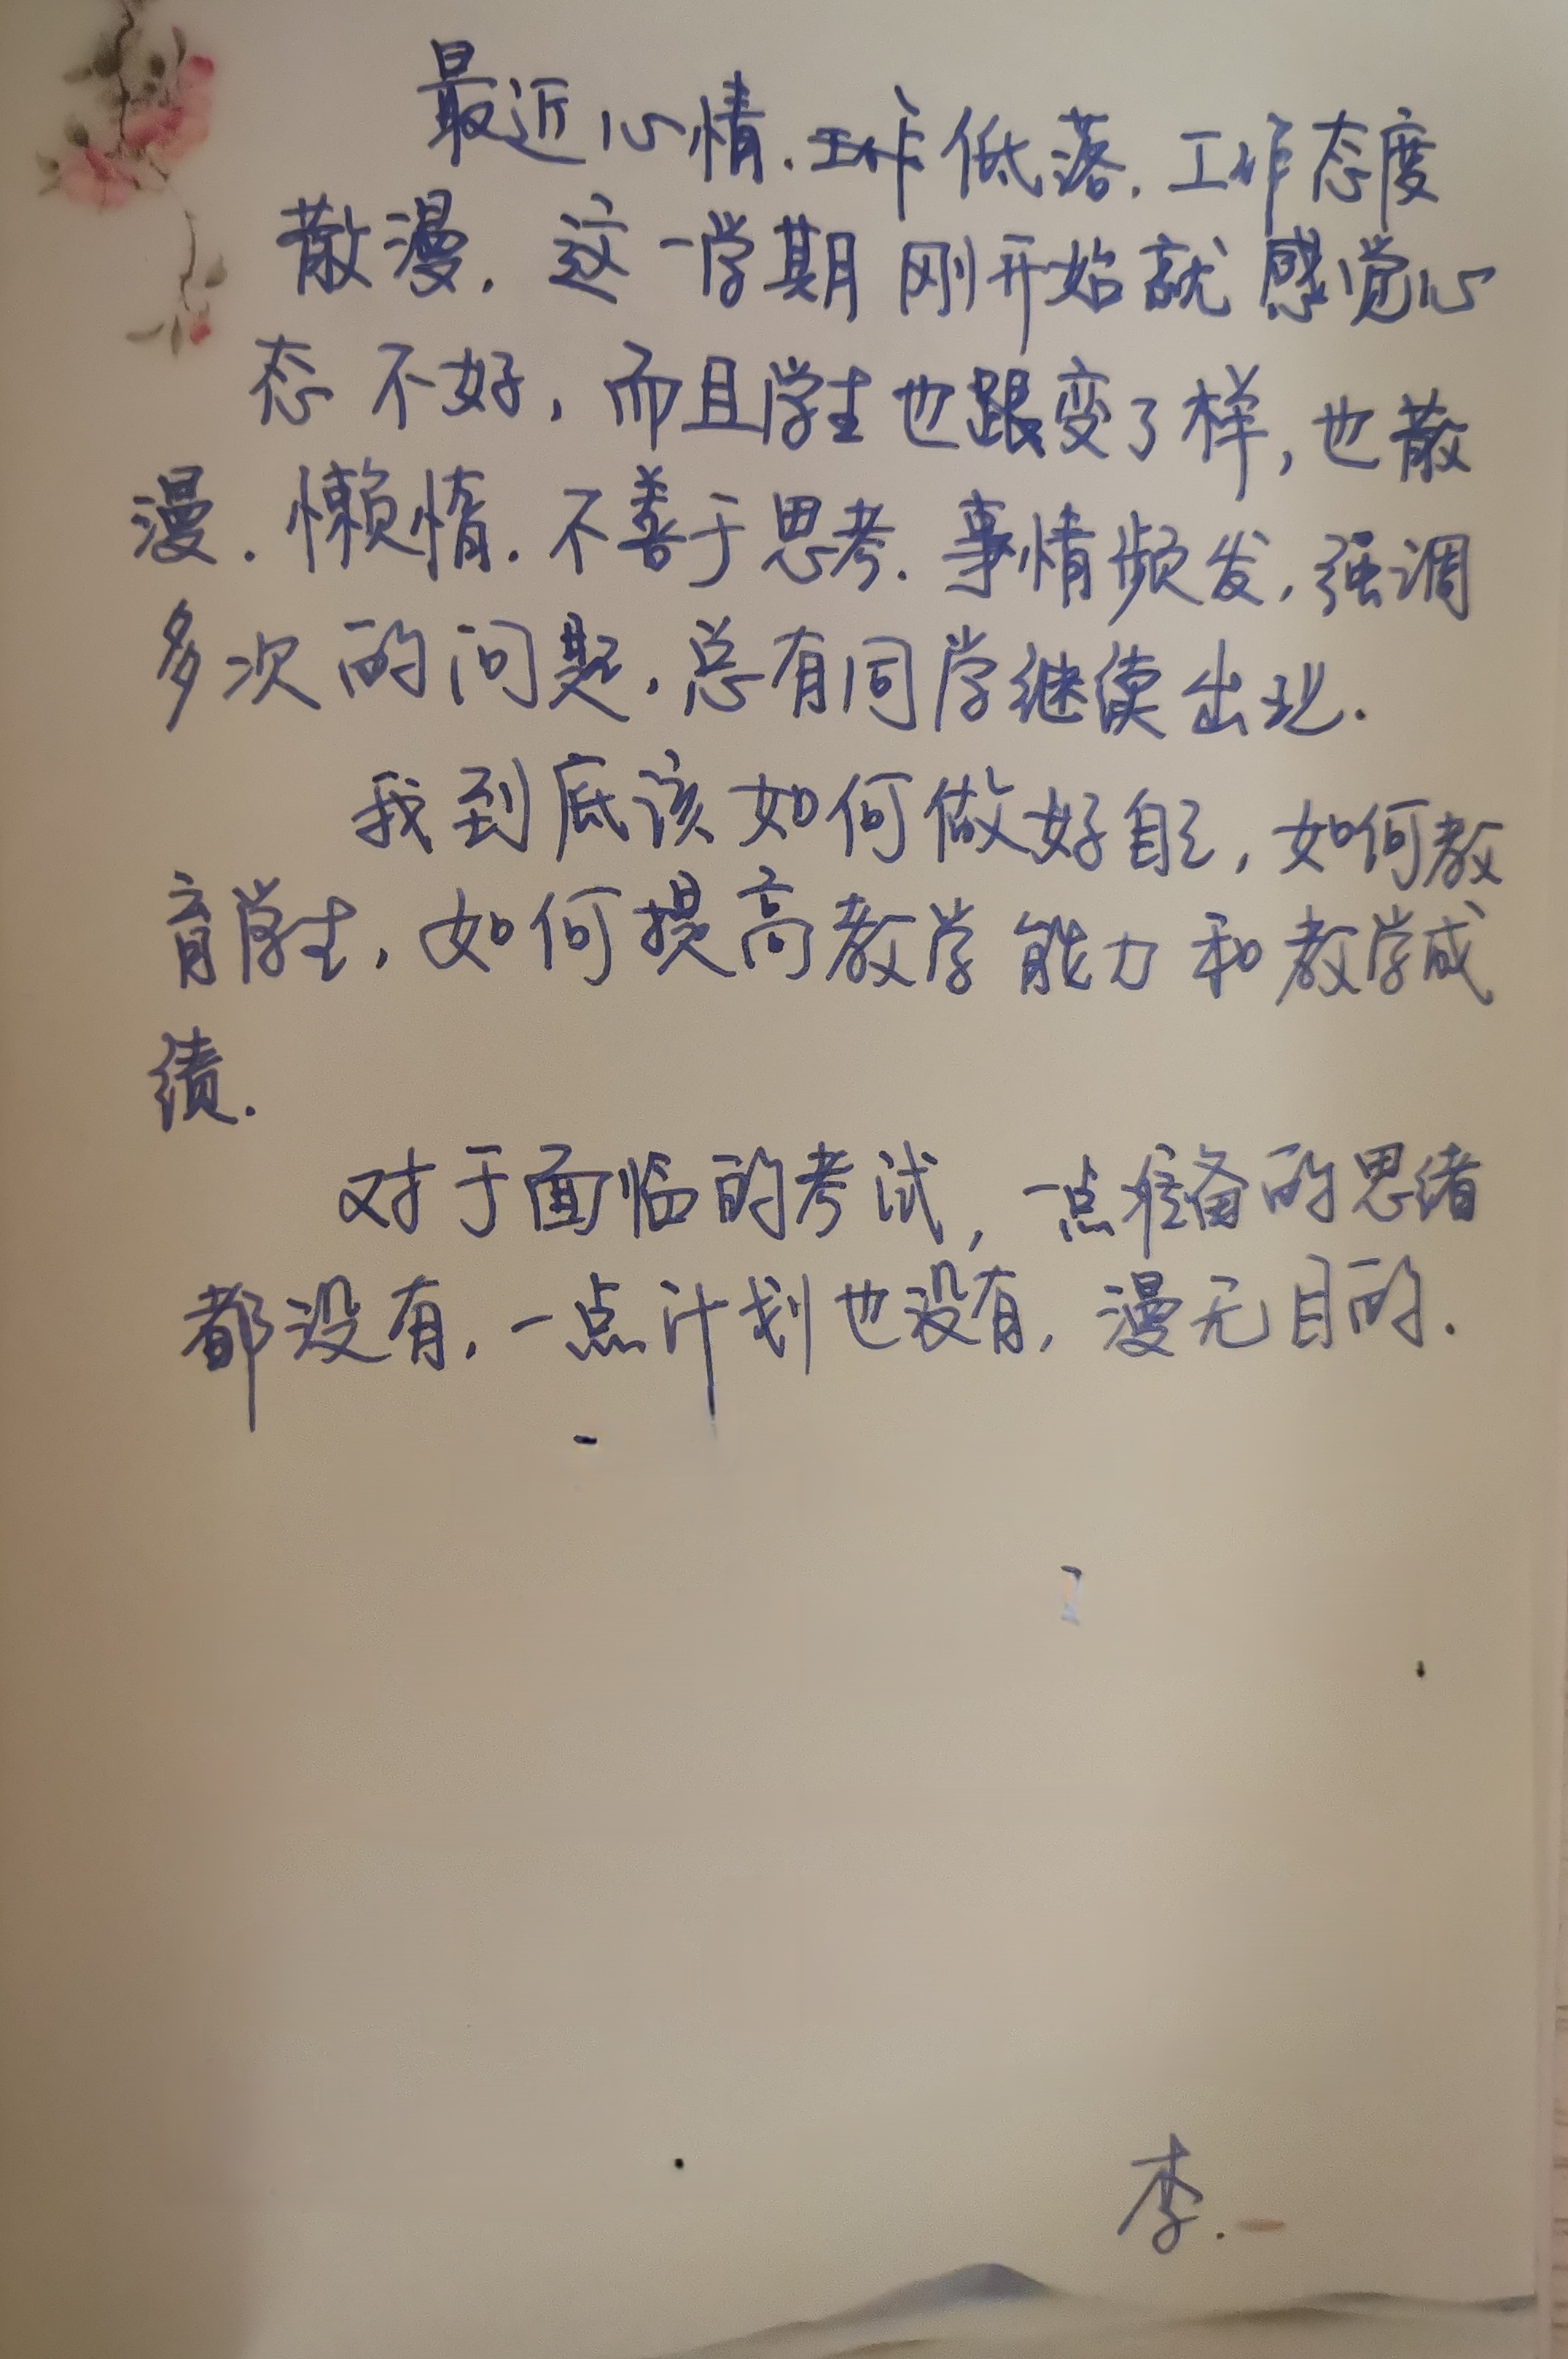 最近心情.工作低落.工作态度
散漫.这一学期刚开始就感觉心
态不好,而且学生也跟变了样,也散
漫.懒惰.不善于思考.事情频发,强调
多次的问题,总有同学继续出现.
我到底该如何做好自己,如何教
育学生,如何提高教学能力和教学成
绩.
对于面临的考试,一点准备的思绪
都没有,一点计划也没有,漫无目的.
李.